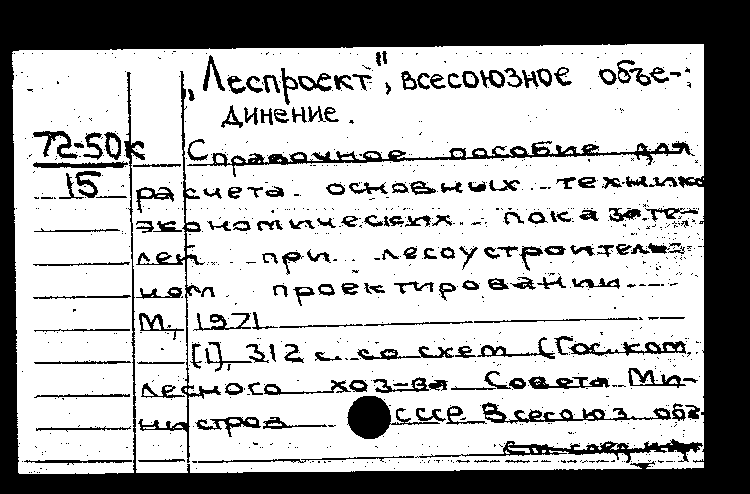 „Леспроект", всесоюзное объе-
динение.
72-50к
15
Справочное пособие для
расчета основных технико
экономических показате-
лей при лесоустроитель-
ном проектировании.
М., 1971
[1], 312 с. со схем (Гос. ком.
лесного хоз-ва Совета Ми-
нистров СССР Всесоюз. объ-
см. след.